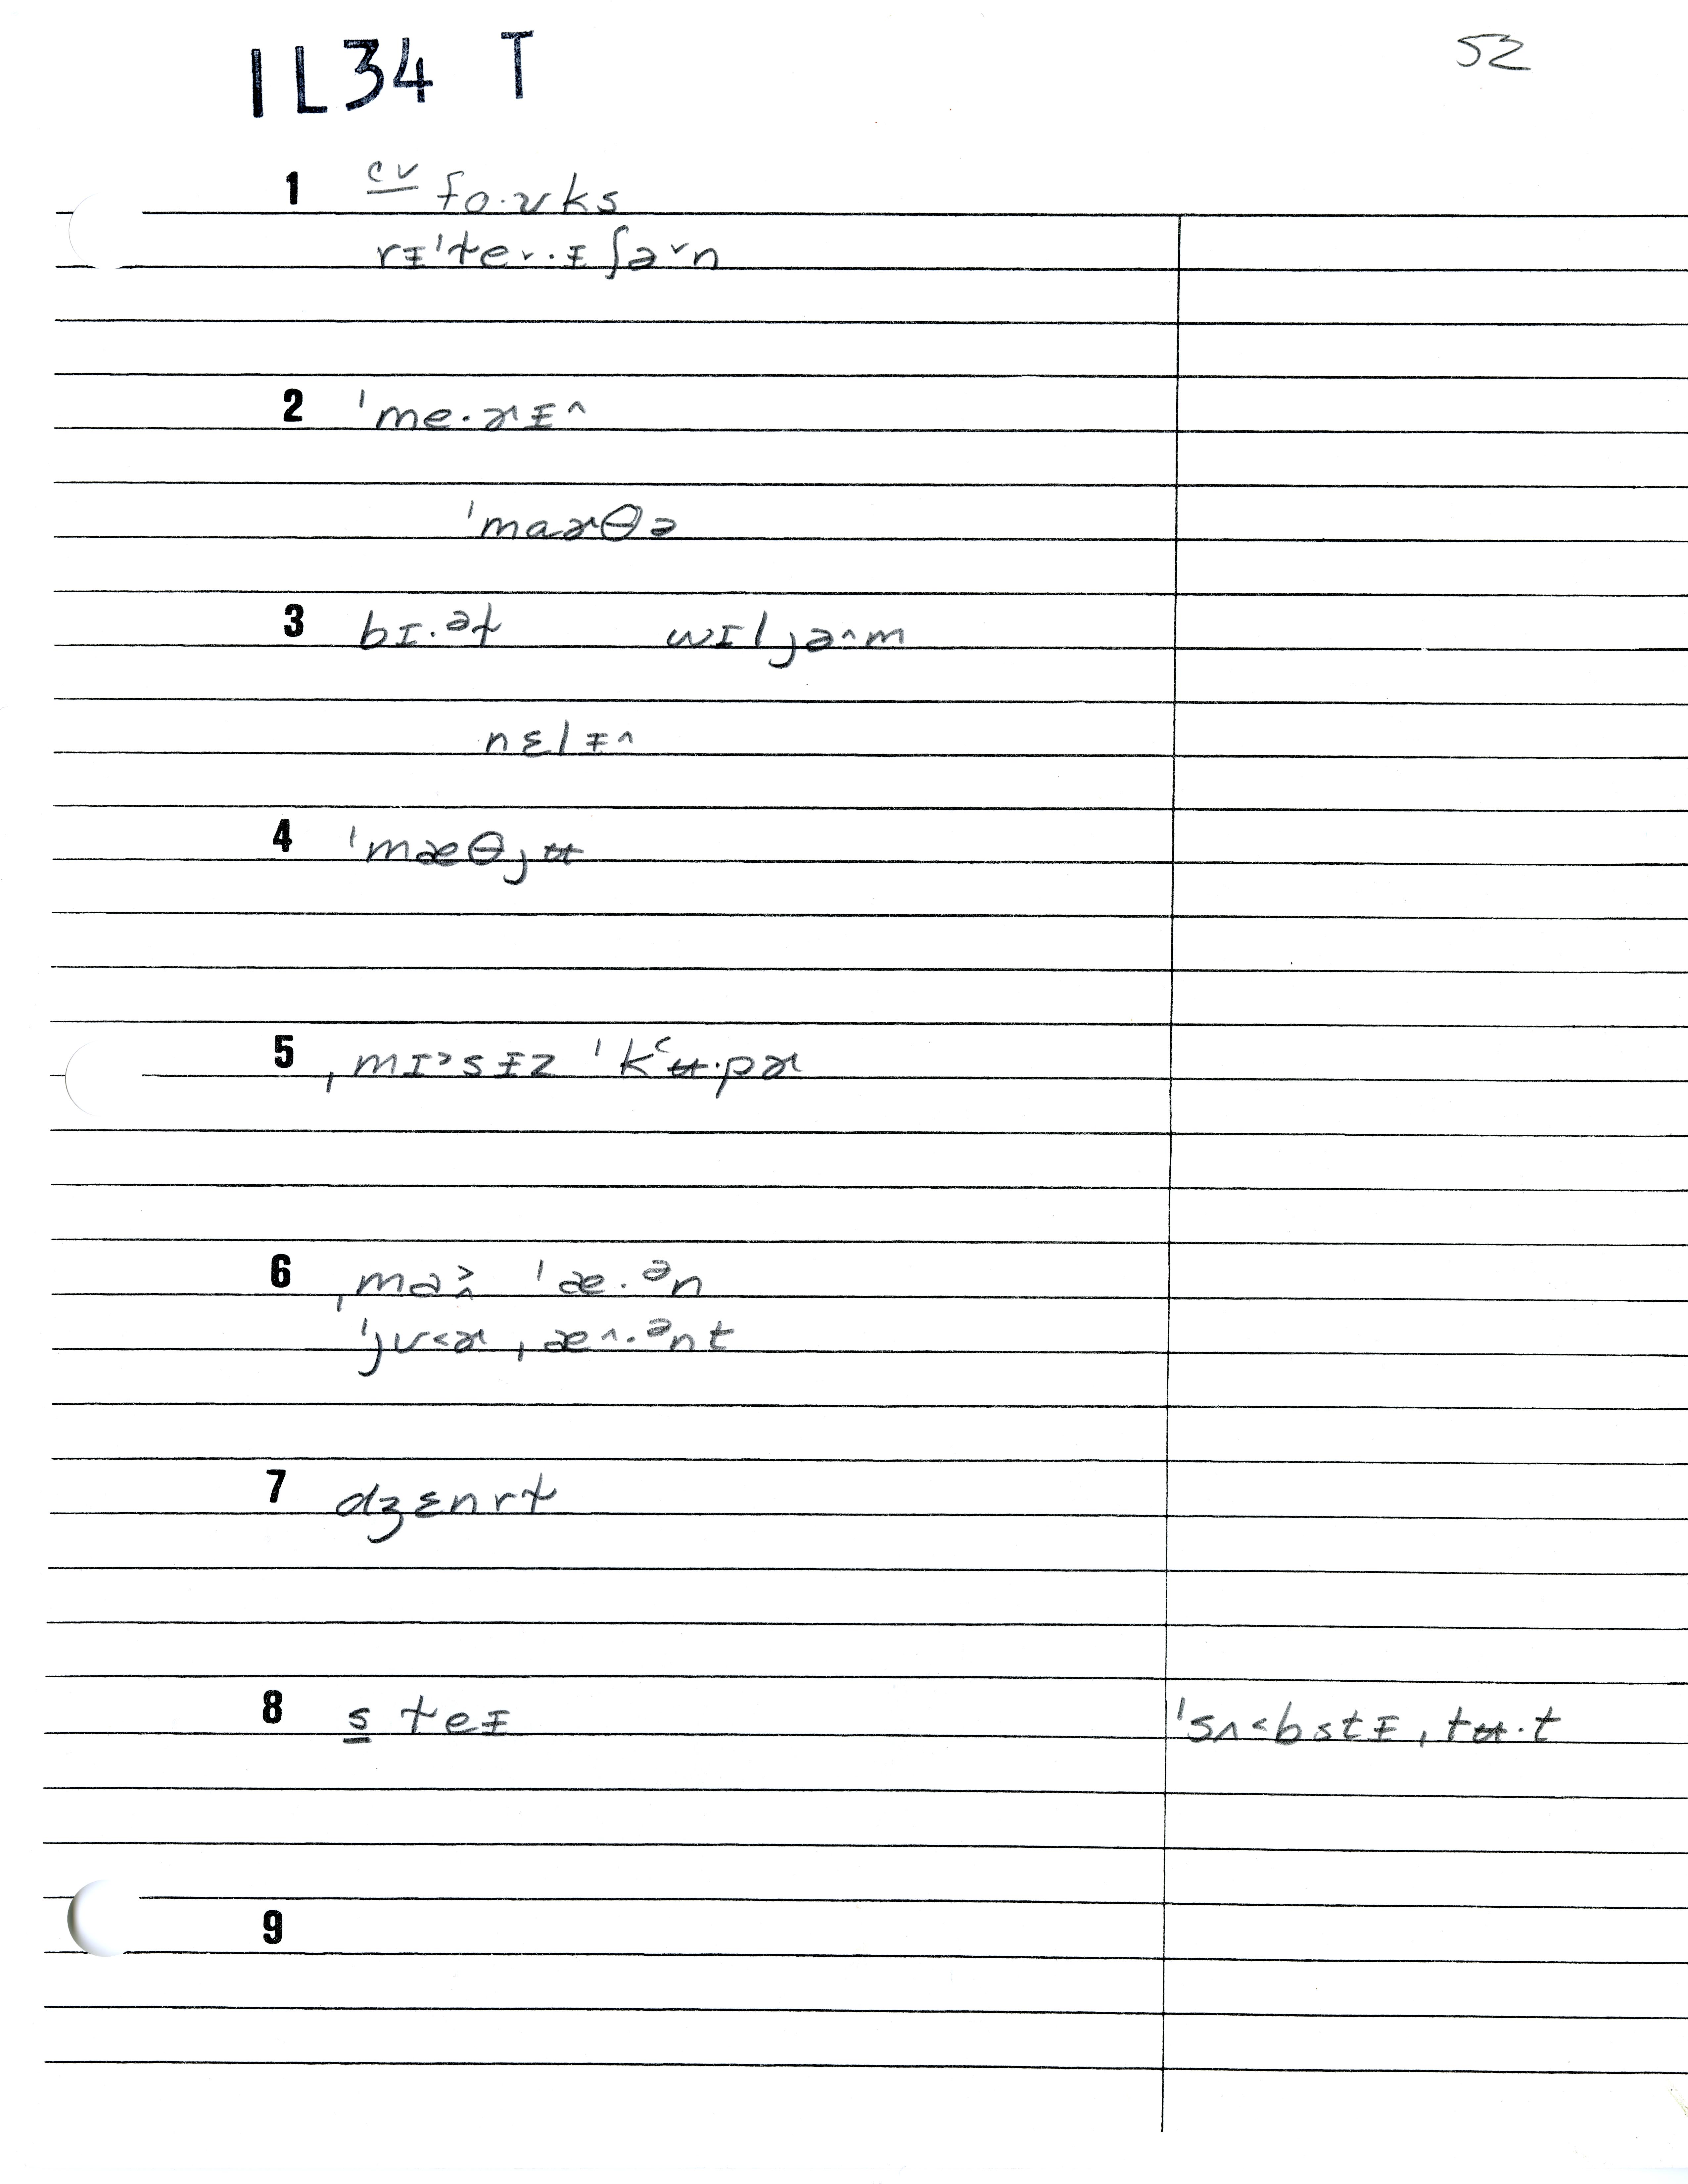 IL34 T 52
1 cv fo·ʊks
rᵻˈteˇ··ᵻʃəˇn
2 ˈme·ɚᵻ^
ˈmaɚθə
3 bɪ·ᵊɫ wɪljə^m
nɛlᵻ^
4 ˈmæθjʉ
5 ˌmɪ˃sᵻz ˈkʿʉ·pɚ
6 ˌma˃^ ˈæ·ᵊn
ˈjʊ˂ɚ ˌæ^·ᵊnt
7 dʒɛnrɫ
8 s ɫeᵻ ˈsʌ˂bstᵻˌtʉ·t
9